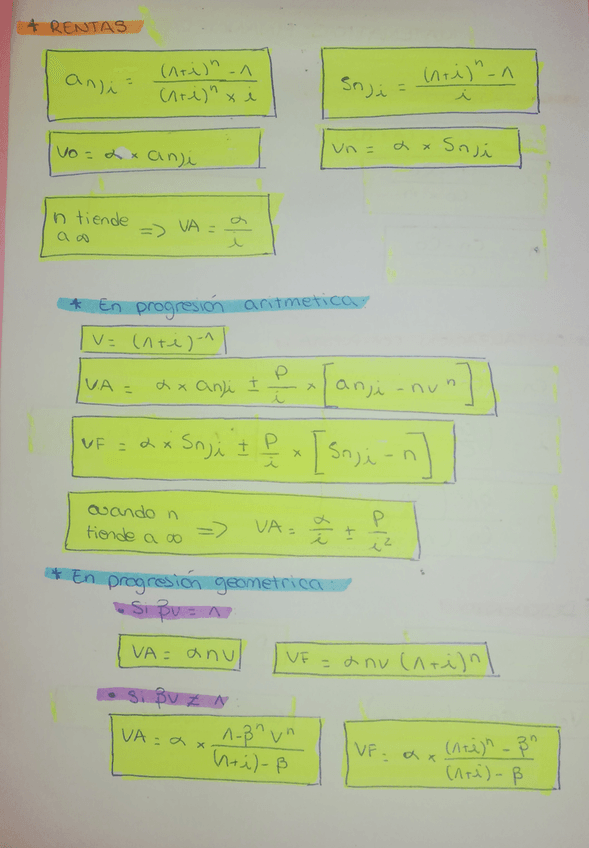 * RENTAS
an⌉i = ((1+i)^n - 1) / ((1+i)^n × i)
Sn⌉i = ((1+i)^n - 1) / i
Vo = α × an⌉i
Vn = α × Sn⌉i
n tiende a ∞ => VA = α/i
* En progresión aritmetica
V = (1+i)^-1
VA = α × an⌉i ± P/i × [an⌉i - nv^n]
VF = α × Sn⌉i ± P/i × [Sn⌉i - n]
cuando n tiende a ∞ => VA = α/i ± P/i²
* En progresión geometrica:
• Si βv = 1
VA = αnv
VF = αnv (1+i)^n
• Si βv ≠ 1
VA = α × (1-β^n v^n) / ((1+i) - β)
VF = α × ((1+i)^n - β^n) / ((1+i) - β)